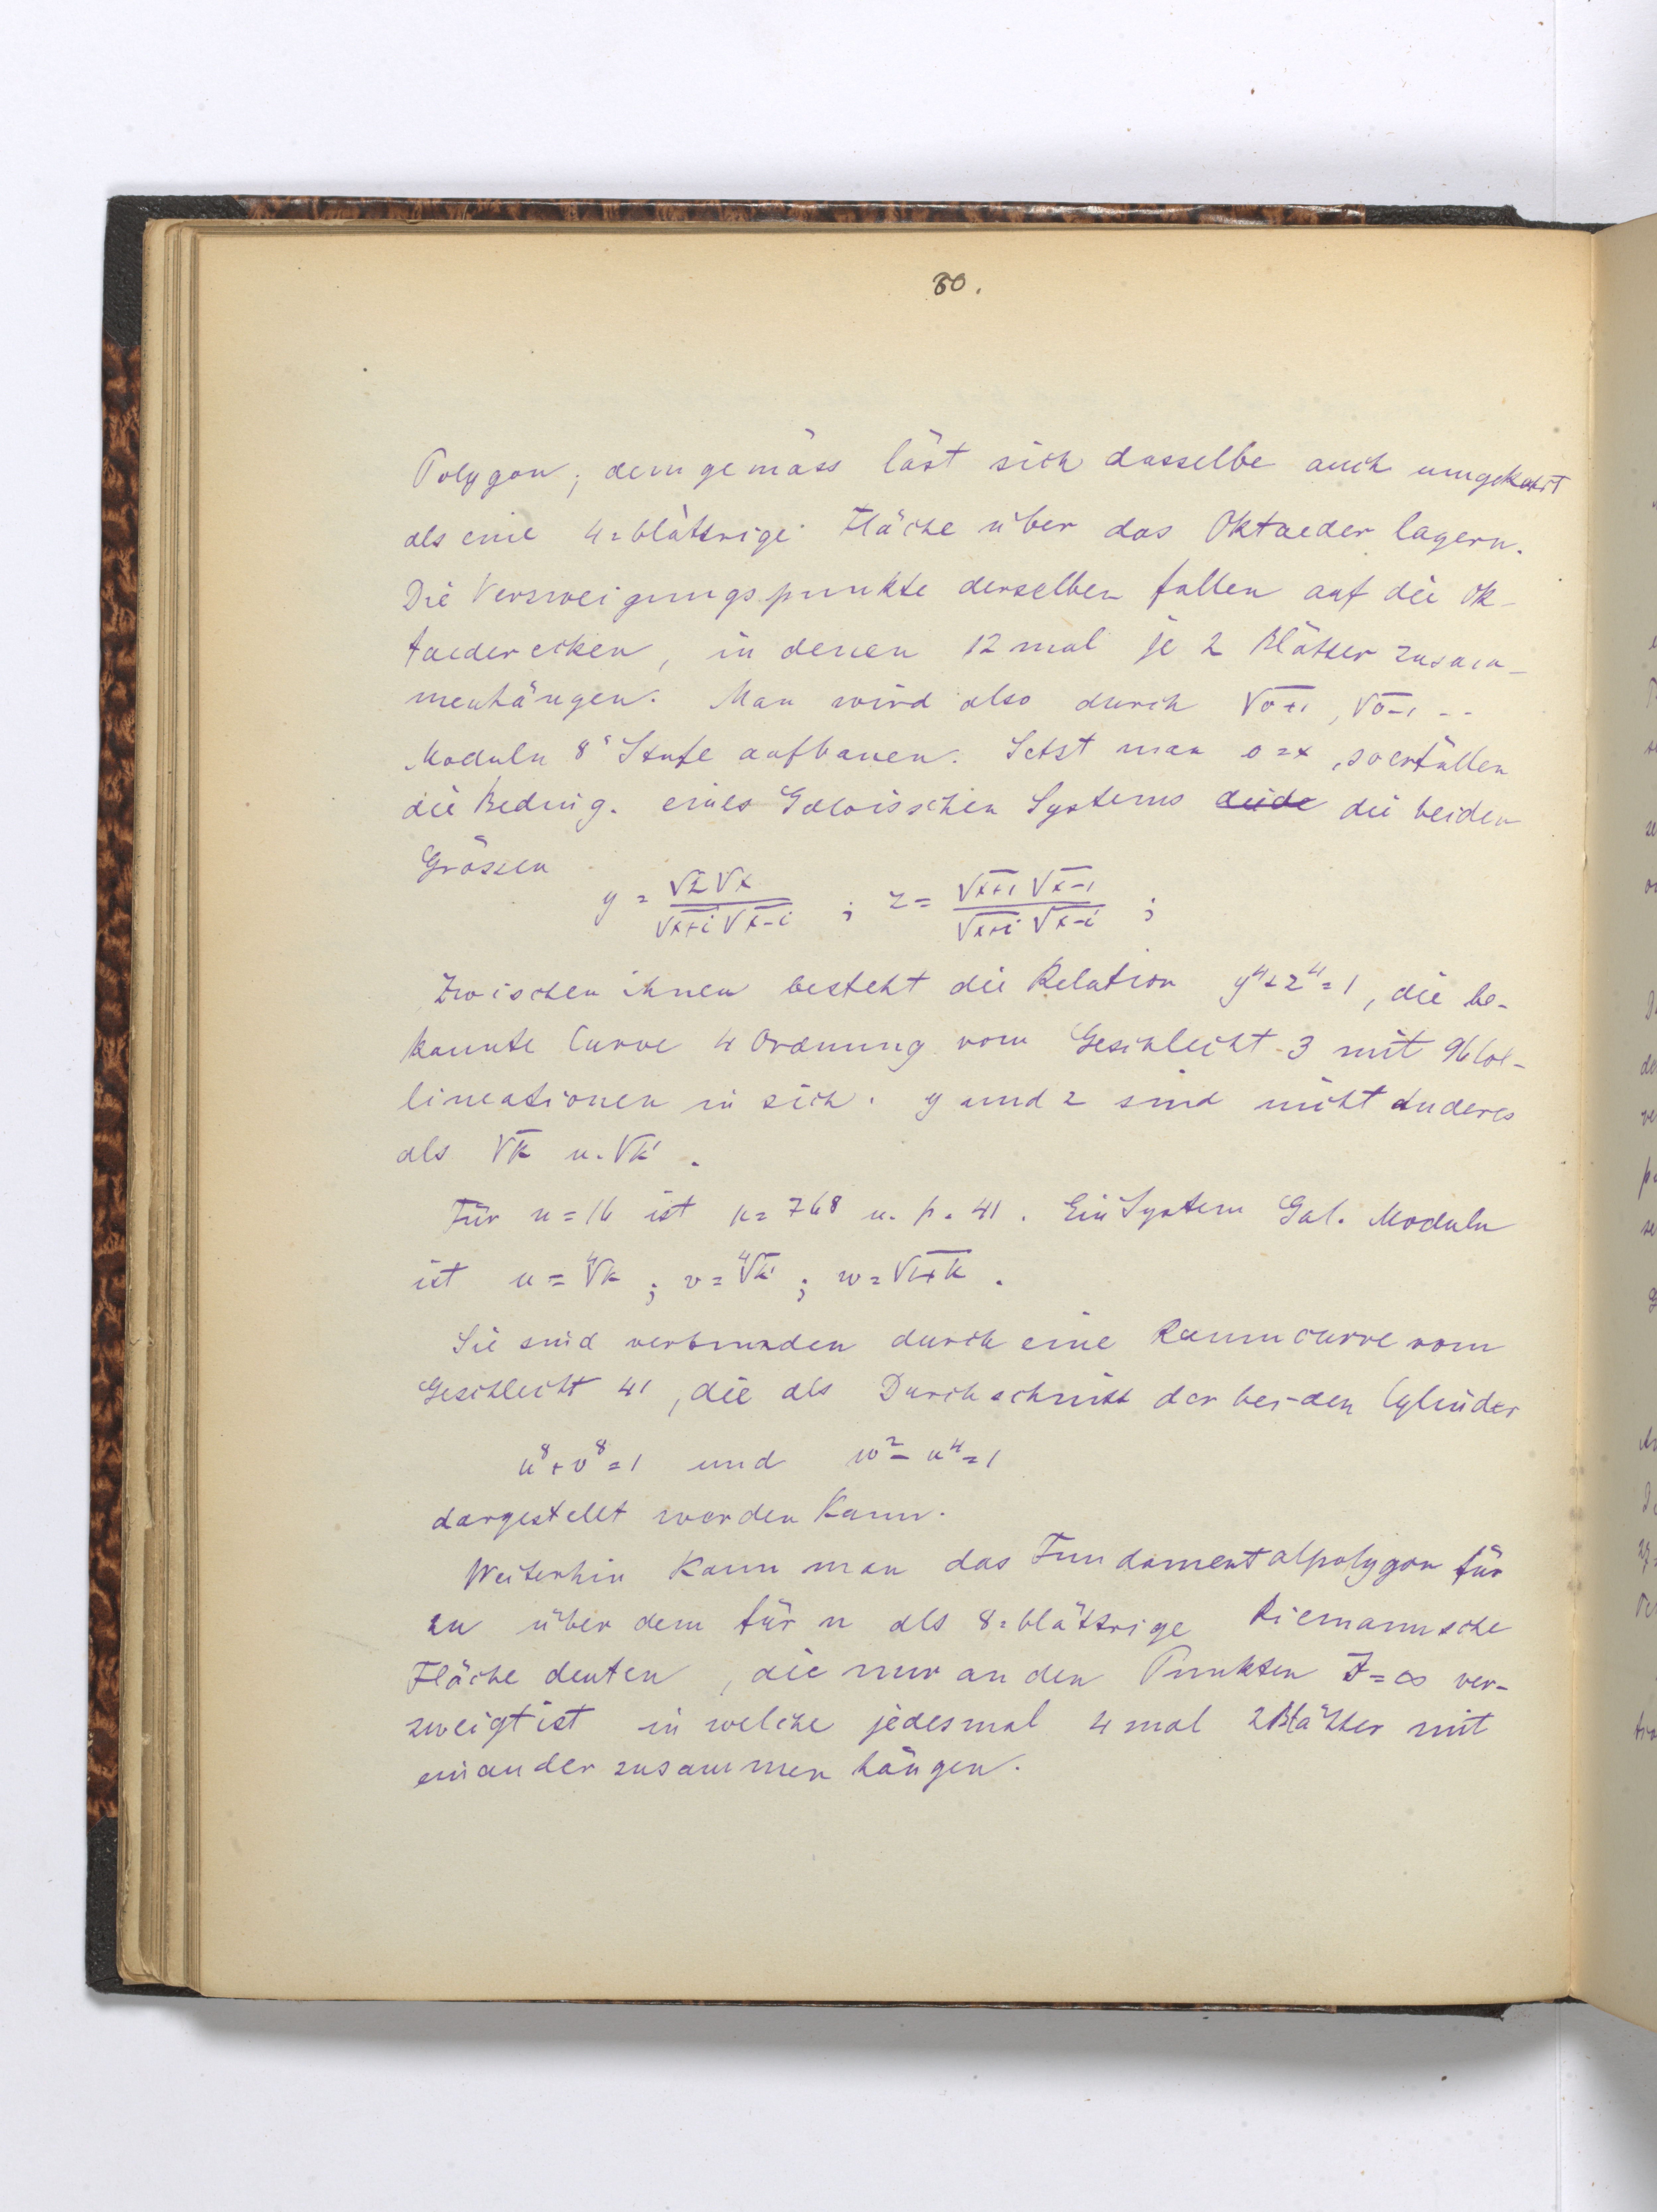 80.
Polygon; demgemäss läst sich dasselbe auch umgekehrt
als eine 4=blättrige Fläche über das Oktaeder lagern.
Die Verzweigungspunkte derselben fallen auf die Ok-
taederecken, in denen 12 mal je 2 Blätter zusam-
menhängen. Man wird also durch √o+1, √o-1 --
Moduln 8ʳ Stufe aufbauen. Setzt man o=x, so erfüllen
die Beding. eines Galoisschen Systems die beiden
Grössen
y = √2 √x / √x+i √x-i ; z = √x+1 √x-1 / √x+i √x-i ;
Zwischen ihnen besteht die Relation y⁴+z⁴=1, die be-
kannte Curve 4 Ordnung vom Geschlecht 3 mit 96 Col-
lineationen in sich. y und z sind nicht Anderes
als √k u. √k' .
Für n=16 ist μ=768 u. p=41. Ein System Gal. Moduln
ist u=⁴√k ; v=⁴√k' ; w=√1+k .
Sie sind verbunden durch eine Raumcurve vom
Geschlecht 41, die als Durchschnitt der bei-den Cylinder
u⁸+v⁸=1 und w²-u⁴=1
dargestellt werden kann.
Weiterhin kann man das Fundamentalpolygon für
2n über dem für n als 8=blättrige Riemannsche
Fläche deuten, die nur an den Punkten J=∞ ver-
zweigt ist in welche jedesmal 4 mal 2 Blätter mit
einander zusammen hängen.